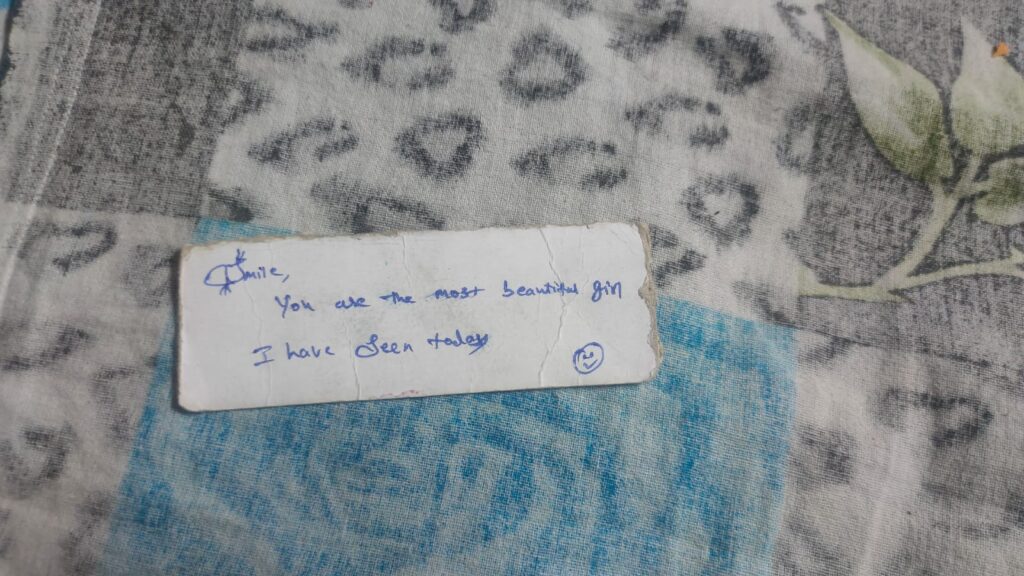 Smile,
You are the most beautiful girl
I have seen today